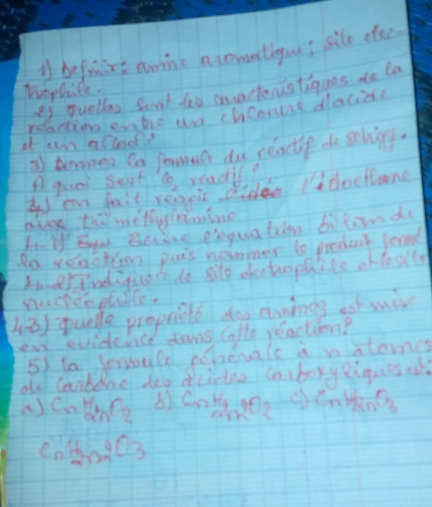 1) Definir: amine aromatique; site elec-
trophile.
2) Quelles sont les caractéristiques de la
réaction entre un chlorure d'acide
et un alcool?
3) Donner la formule du réactif de schiff.
A quoi sert ce reactif?
4) on fait réagir l'iodoethane
avec triméthylamine
4-1) Ecrire l'equation bilan de
la reaction puis nommer le produit formé
indiquer le site electrophile et le site
nucleophile.
4-3) Quelle propriété des amines est mise
en evidence dans cette réaction?
5) la formule générale à n atomes
de Carbone des acides carboxyliques est:
a) CnH2nO2 b) CnH2n2O2 c) CnH2nO3
CnH2n2O3